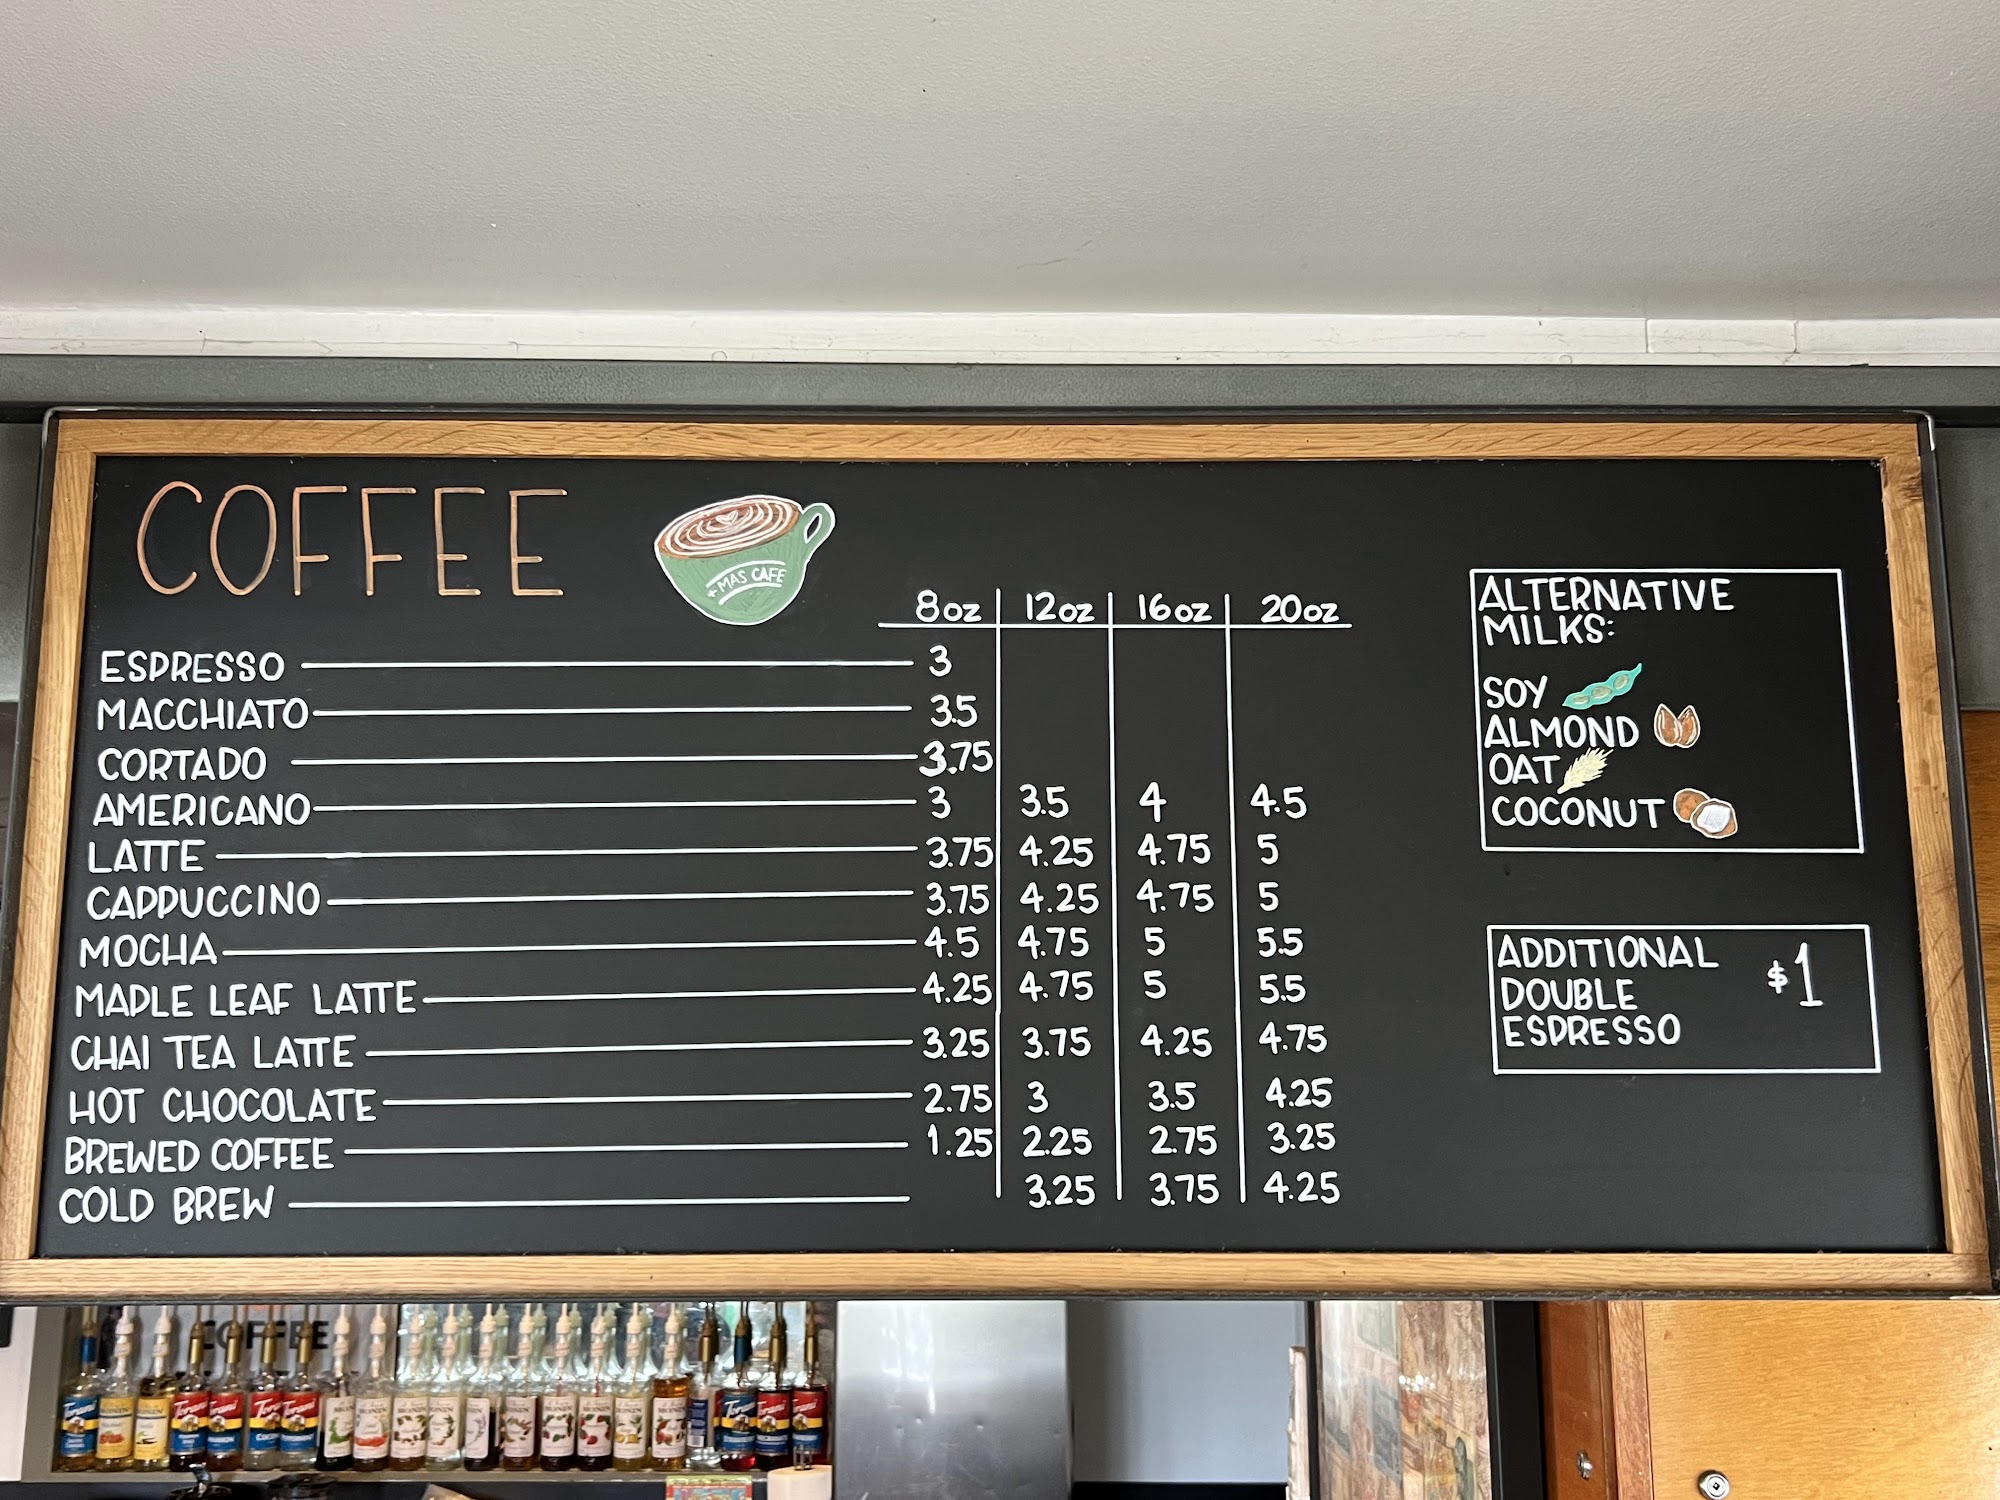 COFFEE
+MAS CAFE
8oz 12oz 16oz 20oz
ESPRESSO 3
MACCHIATO 3.5
CORTADO 3.75
AMERICANO 3 3.5 4 4.5
LATTE 3.75 4.25 4.75 5
CAPPUCCINO 3.75 4.25 4.75 5
MOCHA 4.5 4.75 5 5.5
MAPLE LEAF LATTE 4.25 4.75 5 5.5
CHAI TEA LATTE 3.25 3.75 4.25 4.75
HOT CHOCOLATE 2.75 3 3.5 4.25
BREWED COFFEE 1.25 2.25 2.75 3.25
COLD BREW 3.25 3.75 4.25
ALTERNATIVE
MILKS:
SOY
ALMOND
OAT
COCONUT
ADDITIONAL
DOUBLE
ESPRESSO
$1
COFFEE
Torani
Torani
Torani
Torani
Torani
Torani
Torani
Torani